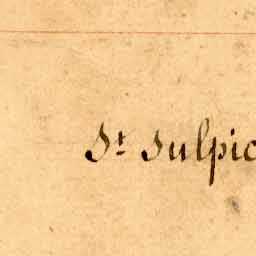 St Sulpic